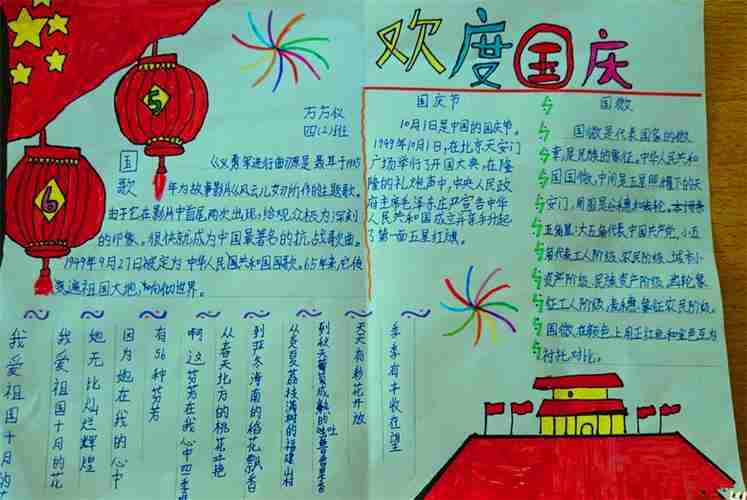 欢度国庆
5
6
万方仪
四(2)班
国歌
《义勇军进行曲》原是聂其于1935
年为故事影片《风云儿女》所作的主题歌。
由于它在影片中首尾两次出现，给观众极为深刻
的印象。很快就成为中国最著名的抗战歌曲。
1949年9月27日被定为中华人民共和国国歌。65年来，它传
遍祖国大地，响彻世界。
国庆节
10月1日是中国的国庆节。
1949年10月1日，在北京天安门
广场举行了开国大典，在隆
隆的礼炮声中，中央人民政
府主席毛泽东庄严宣告中华
人民共和国成立并亲手升起
了第一面五星红旗。
国徽
国徽是代表国家的徽
章，是民族的象征。中华人民共和
国国徽，中间是五星照耀下的天
安门，周围是谷穗和齿轮。
五角星：大五角代表中国共产党，小五
角代表工人阶级、农民阶级、城市小
资产阶级、民族资产阶级。齿轮象
征工人阶级，谷穗象征农民阶级。
国徽在颜色上用正红色和金色互为
衬托对比。
我爱祖国十月的
我爱祖国十月的花
她无比灿烂辉煌
因为她在我的心中
有56种芬芳
啊这芬芳在我心中四季
从春天北方的桃花吐艳
到严冬海南的稻花飘香
从炎夏荔枝满树的福建山村
到秋天
天天有鲜花开放
季季有丰收在望